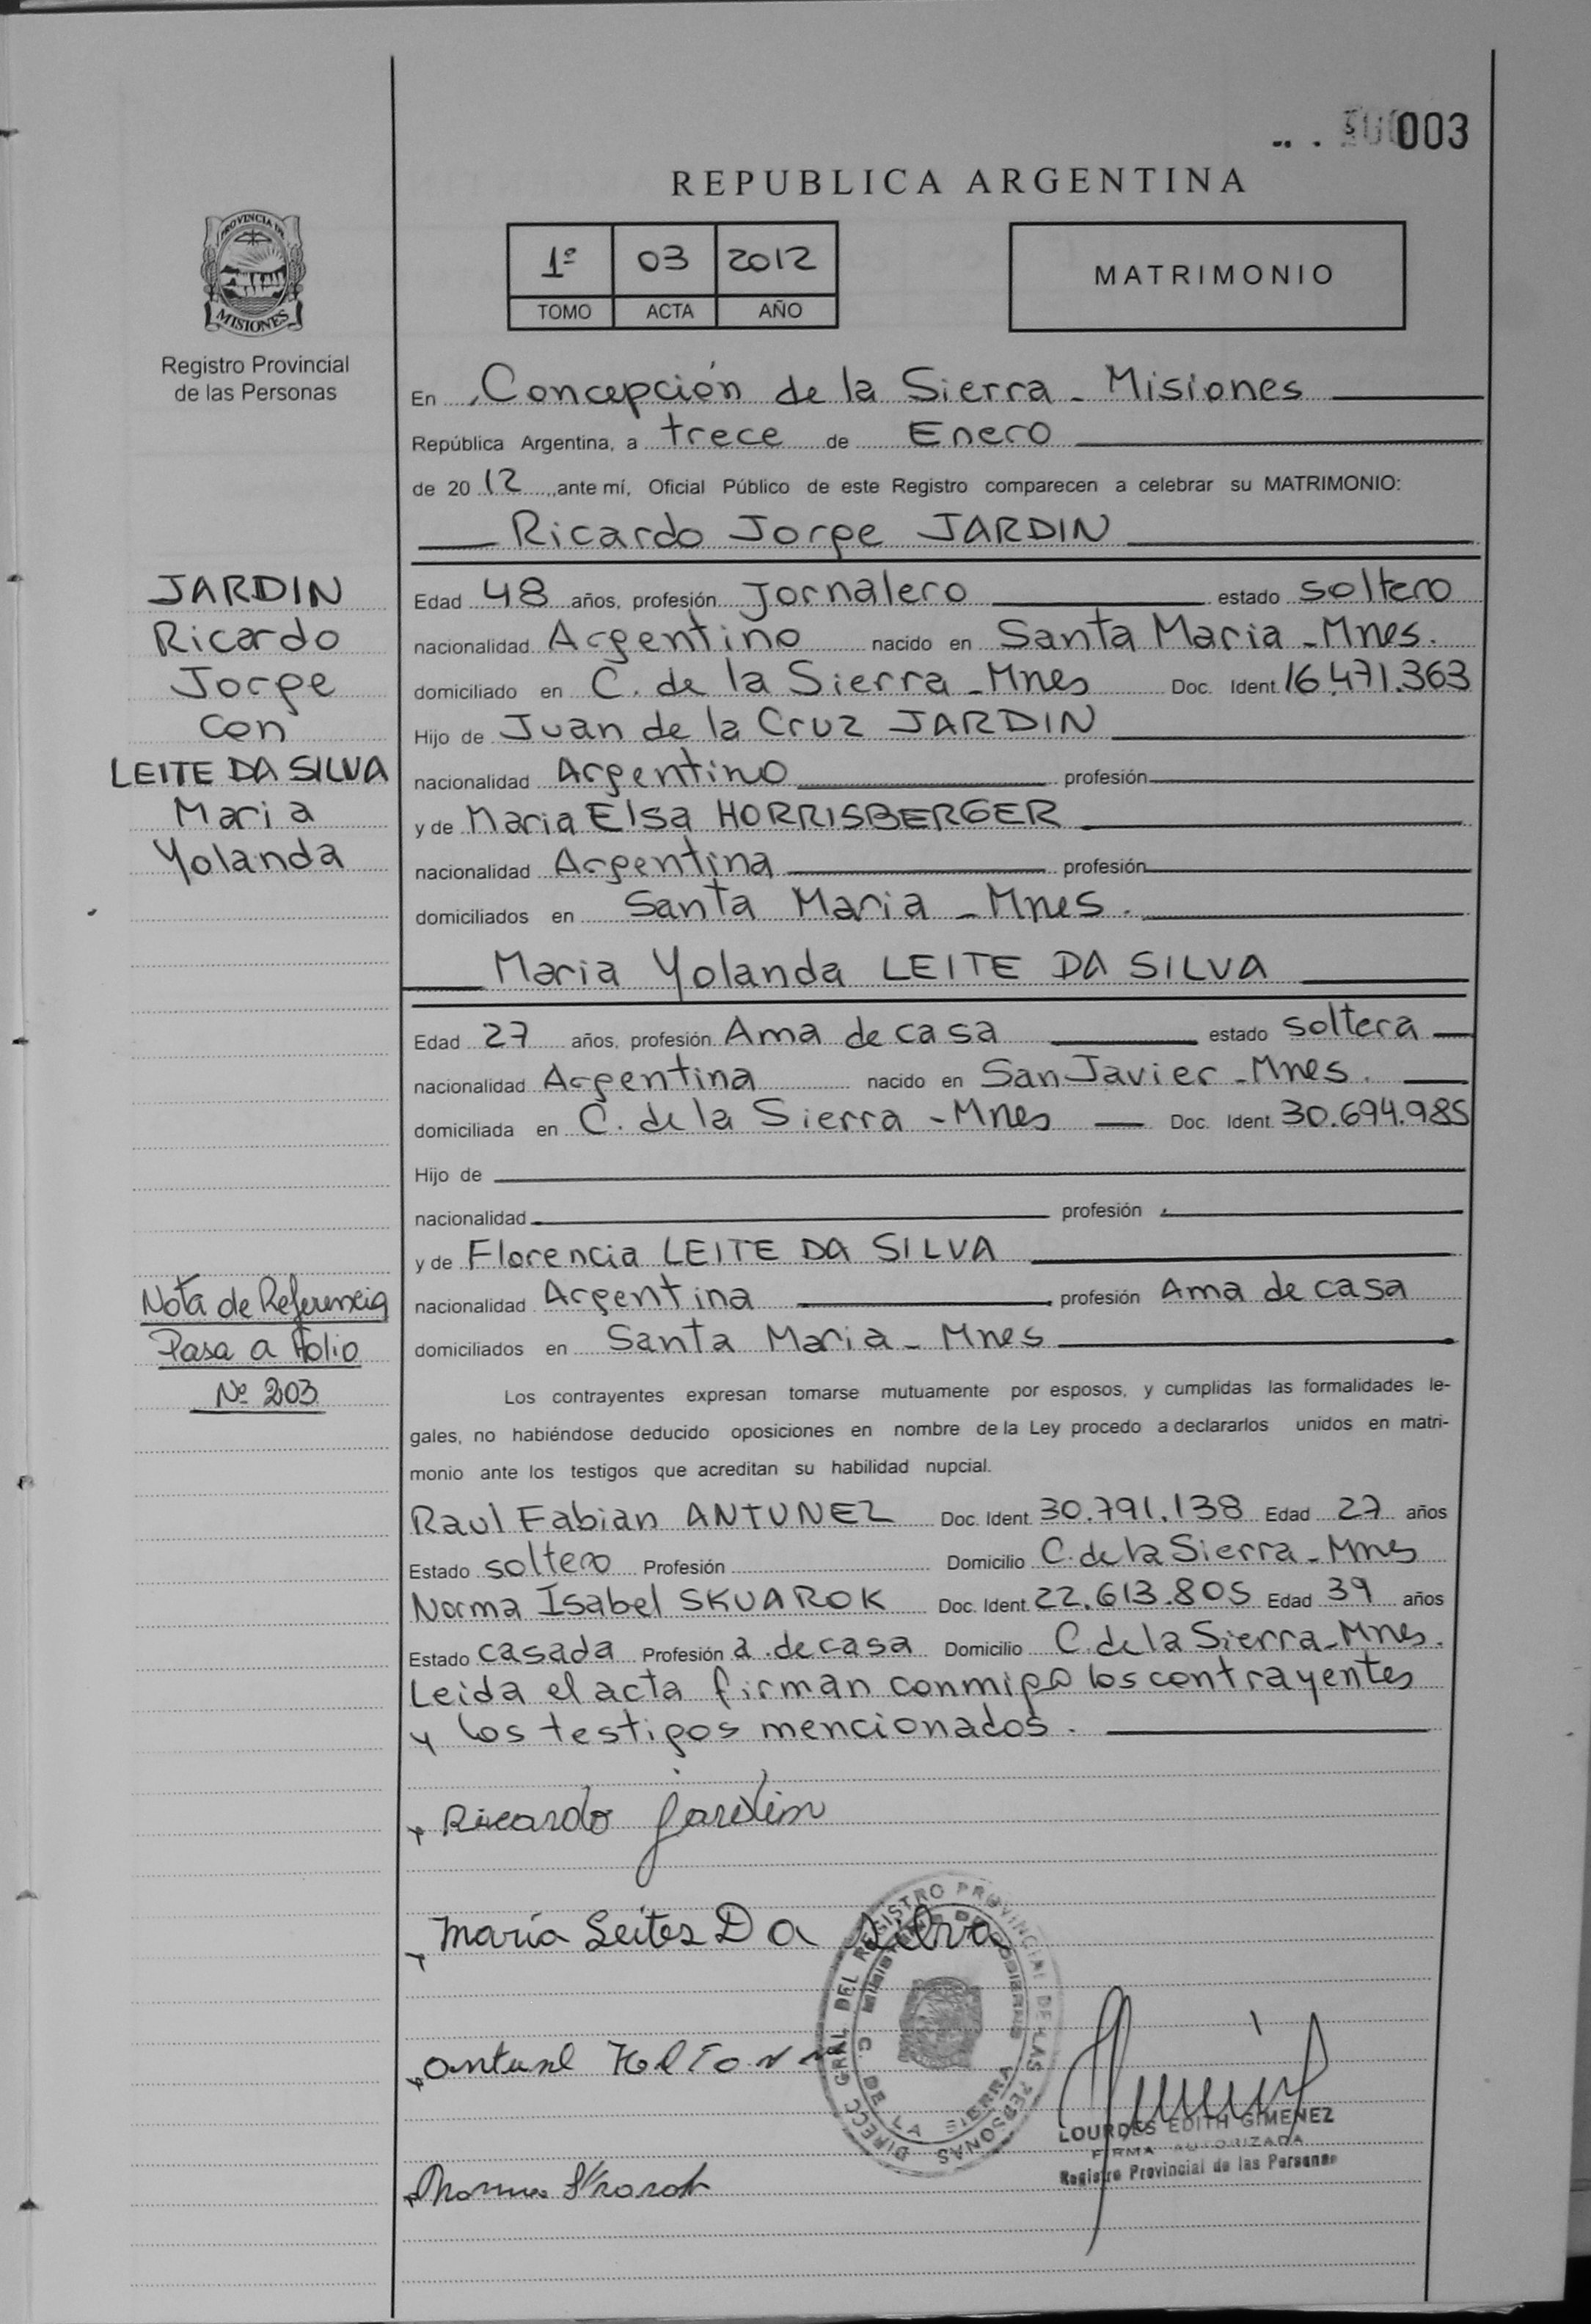 003
REPUBLICA ARGENTINA
PROVINCIA DE
MISIONES
Registro Provincial
de las Personas
1º 03 2012
TOMO ACTA AÑO
MATRIMONIO
En Concepción de la Sierra - Misiones
República Argentina, a trece de Enero
de 20 12 ,ante mí, Oficial Público de este Registro comparecen a celebrar su MATRIMONIO:
Ricardo Jorge JARDIN
JARDIN
Ricardo
Jorge
con
LEITE DA SILVA
Maria
Yolanda
Edad 48 años, profesión Jornalero estado soltero
nacionalidad Argentino nacido en Santa Maria - Mnes.
domiciliado en C. de la Sierra - Mnes Doc. Ident. 16.471.363
Hijo de Juan de la Cruz JARDIN
nacionalidad Argentino profesión
y de Maria Elsa HORRISBERGER
nacionalidad Argentina profesión
domiciliados en Santa Maria - Mnes.
Maria Yolanda LEITE DA SILVA
Edad 27 años, profesión Ama de casa estado soltera
nacionalidad Argentina nacido en San Javier - Mnes.
domiciliada en C. de la Sierra - Mnes Doc. Ident. 30.694.985
Hijo de
nacionalidad profesión
y de Florencia LEITE DA SILVA
nacionalidad Argentina profesión Ama de casa
domiciliados en Santa Maria - Mnes
Nota de Referencia
Pasa a Folio
Nº 203
Los contrayentes expresan tomarse mutuamente por esposos, y cumplidas las formalidades le-
gales, no habiéndose deducido oposiciones en nombre de la Ley procedo a declararlos unidos en matri-
monio ante los testigos que acreditan su habilidad nupcial.
Raul Fabian ANTUNEZ Doc. Ident. 30.791.138 Edad 27 años
Estado soltero Profesión Domicilio C. de la Sierra - Mnes
Norma Isabel SKVAROK Doc. Ident. 22.613.805 Edad 39 años
Estado casada Profesión a. de casa Domicilio C. de la Sierra - Mnes.
Leida el acta firman conmigo los contrayentes
y los testigos mencionados.
Ricardo Jardin
María Leites Da Silva
DIRECC. GRAL DEL REGISTRO PROVINCIAL DE LAS PERSONAS
MINISTERIO DE GOBIERNO
C. DE LA SIERRA
LOURDES EDITH GIMENEZ
FIRMA AUTORIZADA
Registro Provincial de las Personas